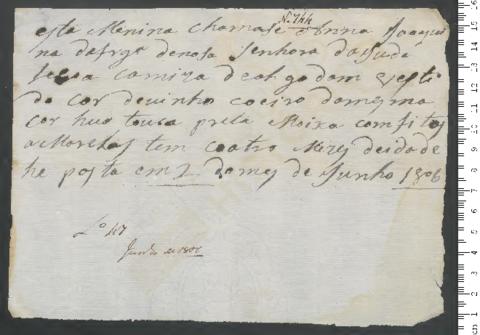 N. 744
esta Menina chamase Anna Joaqui
na da frga de nosa Senhora da Juda
leva camiza de algodam vesti
do cor de vinho coeiro da mesma
cor hua touca preta Moixa com fitas
amorelas tem coatro Mezes de idade
he posta em 2 do mes de Junho 1806
Lo 47
Junho de 1806